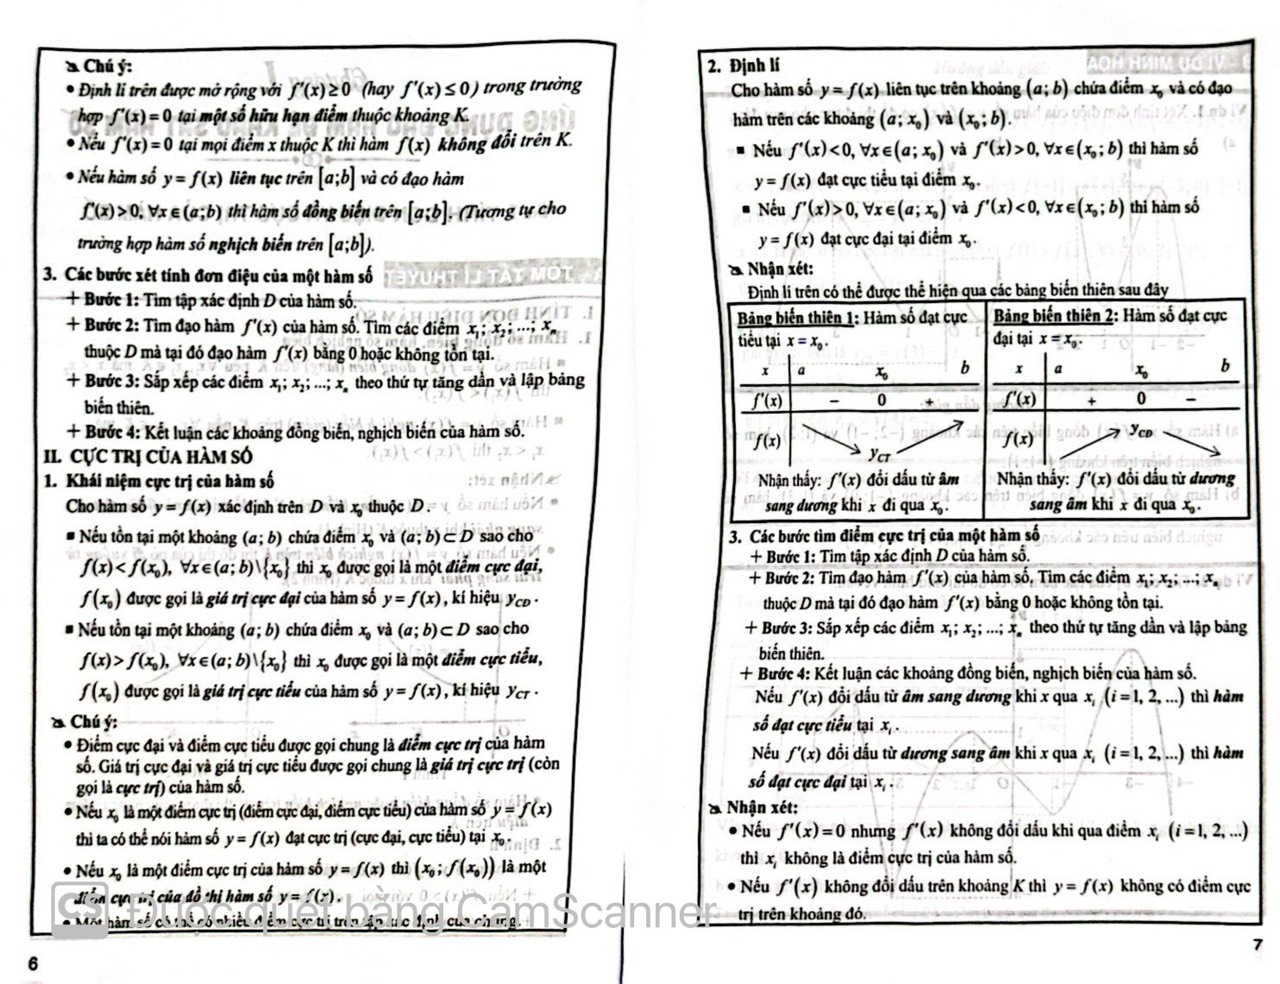 a Chú ý:
• Định lí trên được mở rộng với f'(x) ≥ 0 (hay f'(x) ≤ 0) trong trường
hợp f'(x) = 0 tại một số hữu hạn điểm thuộc khoảng K.
• Nếu f'(x) = 0 tại mọi điểm x thuộc K thì hàm f(x) không đổi trên K.
• Nếu hàm số y = f(x) liên tục trên [a;b] và có đạo hàm
f'(x) > 0, ∀x ∈ (a;b) thì hàm số đồng biến trên [a;b]. (Tương tự cho
trường hợp hàm số nghịch biến trên [a;b]).
3. Các bước xét tính đơn điệu của một hàm số
+ Bước 1: Tìm tập xác định D của hàm số.
+ Bước 2: Tìm đạo hàm f'(x) của hàm số. Tìm các điểm x₁; x₂; ...; xₙ
thuộc D mà tại đó đạo hàm f'(x) bằng 0 hoặc không tồn tại.
+ Bước 3: Sắp xếp các điểm x₁; x₂; ...; xₙ theo thứ tự tăng dần và lập bảng
biến thiên.
+ Bước 4: Kết luận các khoảng đồng biến, nghịch biến của hàm số.
II. CỰC TRỊ CỦA HÀM SỐ
1. Khái niệm cực trị của hàm số
Cho hàm số y = f(x) xác định trên D và x₀ thuộc D.
▪ Nếu tồn tại một khoảng (a; b) chứa điểm x₀ và (a; b) ⊂ D sao cho
f(x) < f(x₀), ∀x ∈ (a; b)\{x₀} thì x₀ được gọi là một điểm cực đại,
f(x₀) được gọi là giá trị cực đại của hàm số y = f(x), kí hiệu y_CĐ.
▪ Nếu tồn tại một khoảng (a; b) chứa điểm x₀ và (a; b) ⊂ D sao cho
f(x) > f(x₀), ∀x ∈ (a; b)\{x₀} thì x₀ được gọi là một điểm cực tiểu,
f(x₀) được gọi là giá trị cực tiểu của hàm số y = f(x), kí hiệu y_CT.
a Chú ý:
• Điểm cực đại và điểm cực tiểu được gọi chung là điểm cực trị của hàm
số. Giá trị cực đại và giá trị cực tiểu được gọi chung là giá trị cực trị (còn
gọi là cực trị) của hàm số.
• Nếu x₀ là một điểm cực trị (điểm cực đại, điểm cực tiểu) của hàm số y = f(x)
thì ta có thể nói hàm số y = f(x) đạt cực trị (cực đại, cực tiểu) tại x₀.
• Nếu x₀ là một điểm cực trị của hàm số y = f(x) thì (x₀; f(x₀)) là một
điểm cực trị của đồ thị hàm số y = f(x).
• Một hàm số có thể có nhiều điểm cực trị trên tập xác định của chúng.
CS Được quét bằng CamScanner
6
2. Định lí
Cho hàm số y = f(x) liên tục trên khoảng (a; b) chứa điểm x₀ và có đạo
hàm trên các khoảng (a; x₀) và (x₀; b).
▪ Nếu f'(x) < 0, ∀x ∈ (a; x₀) và f'(x) > 0, ∀x ∈ (x₀; b) thì hàm số
y = f(x) đạt cực tiểu tại điểm x₀.
▪ Nếu f'(x) > 0, ∀x ∈ (a; x₀) và f'(x) < 0, ∀x ∈ (x₀; b) thì hàm số
y = f(x) đạt cực đại tại điểm x₀.
a Nhận xét:
Định lí trên có thể được thể hiện qua các bảng biến thiên sau đây
Bảng biến thiên 1: Hàm số đạt cực
tiểu tại x = x₀.
x a x₀ b
f'(x) − 0 +
f(x) y_CT
Nhận thấy: f'(x) đổi dấu từ âm
sang dương khi x đi qua x₀.
Bảng biến thiên 2: Hàm số đạt cực
đại tại x = x₀.
x a x₀ b
f'(x) + 0 −
f(x) y_CĐ
Nhận thấy: f'(x) đổi dấu từ dương
sang âm khi x đi qua x₀.
3. Các bước tìm điểm cực trị của một hàm số
+ Bước 1: Tìm tập xác định D của hàm số.
+ Bước 2: Tìm đạo hàm f'(x) của hàm số, Tìm các điểm x₁; x₂; ...; xₙ
thuộc D mà tại đó đạo hàm f'(x) bằng 0 hoặc không tồn tại.
+ Bước 3: Sắp xếp các điểm x₁; x₂; ...; xₙ theo thứ tự tăng dần và lập bảng
biến thiên.
+ Bước 4: Kết luận các khoảng đồng biến, nghịch biến của hàm số.
Nếu f'(x) đổi dấu từ âm sang dương khi x qua xᵢ (i = 1, 2, ...) thì hàm
số đạt cực tiểu tại xᵢ.
Nếu f'(x) đổi dấu từ dương sang âm khi x qua xᵢ (i = 1, 2, ...) thì hàm
số đạt cực đại tại xᵢ.
a Nhận xét:
• Nếu f'(x) = 0 nhưng f'(x) không đổi dấu khi qua điểm xᵢ (i = 1, 2, ...)
thì xᵢ không là điểm cực trị của hàm số.
• Nếu f'(x) không đổi dấu trên khoảng K thì y = f(x) không có điểm cực
trị trên khoảng đó.
7